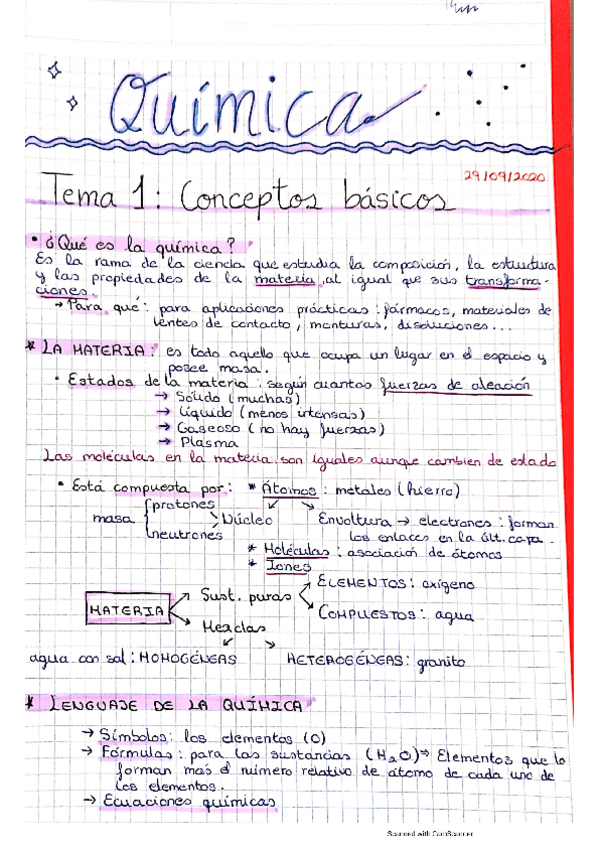 Química
29/09/2020
Tema 1: Conceptos básicos
• ¿Qué es la química?
Es la rama de la ciencia que estudia la composición, la estructura
y las propiedades de la materia al igual que sus transforma-
ciones.
→ Para qué: para aplicaciones prácticas: fármacos, materiales de
lentes de contacto, monturas, disoluciones...
* LA MATERIA: es todo aquello que ocupa un lugar en el espacio y
posee masa.
• Estados de la materia: según cuantas fuerzas de
→ Sólido (muchas)
→ Líquido (menos intensas)
→ Gaseoso (no hay fuerzas)
→ Plasma
Las moléculas en la materia son iguales aunque cambien de estado
• Está compuesta por: * Átomos: metales (hierro)
masa { protones
neutrones
Núcleo
Envoltura → electrones: forman
los enlaces en la últ. capa.
* Moléculas: asociación de átomos
* Iones
MATERIA
Sust. puras
ELEMENTOS: oxígeno
COMPUESTOS: agua
Mezclas
agua con sal: HOMOGÉNEAS
HETEROGÉNEAS: granito
* LENGUAJE DE LA QUÍMICA
→ Símbolos: los elementos (O)
→ Fórmulas: para las sustancias (H₂O) ⇒ Elementos que lo
forman más el número relativo de átomo de cada uno de
los elementos.
→ Ecuaciones químicas
Scanned with CamScanner